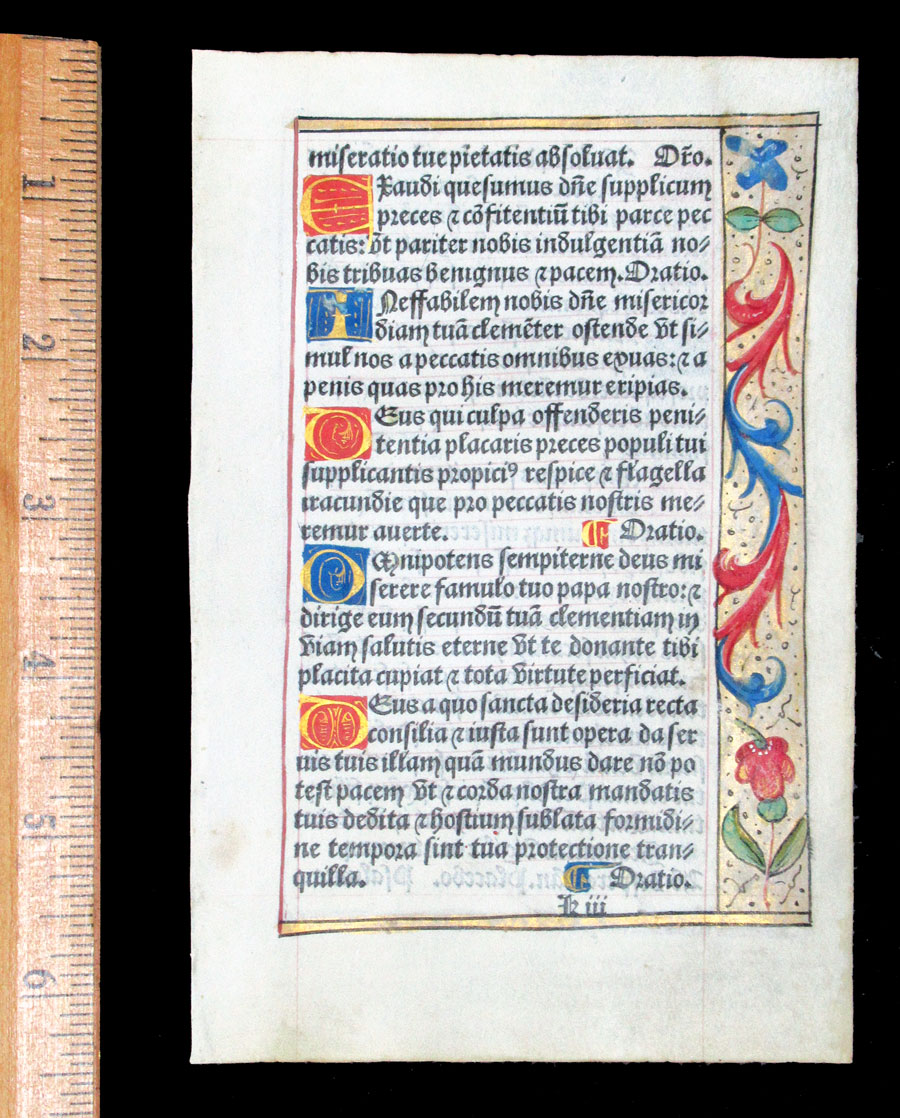 1
2
3
4
5
6
miseratio tue pietatis absoluat. Or̃o.
EXaudi quesumus dñe supplicum
preces ⁊ cõfitentiũ tibi parce pec
catis: vt pariter nobis indulgentiã no⸗
bis tribuas benignus ⁊ pacem. Oratio.
INeffabilem nobis dñe misericor
diam tuã clemẽter ostende vt si⸗
mul nos a peccatis omnibus exuas: ⁊ a
penis quas pro his meremur eripias.
DEus qui culpa offenderis peni⸗
tentia placaris preces populi tui
supplicantis propiciꝰ respice ⁊ flagella
iracundie que pro peccatis nostris me⸗
remur auerte. Oratio.
OMnipotens sempiterne deus mi
serere famulo tuo papa nostro: ⁊
dirige eum secundũ tuã clementiam in
viam salutis eterne vt te donante tibi
placita cupiat ⁊ tota virtute perficiat.
DEus a quo sancta desideria recta
consilia ⁊ iusta sunt opera da ser
uis tuis illam quã mundus dare nõ po
test pacem vt ⁊ corda nostra mandatis
tuis dedita ⁊ hostium sublata formidi⸗
ne tempora sint tua protectione tran⸗
quilla. Oratio.
k iii